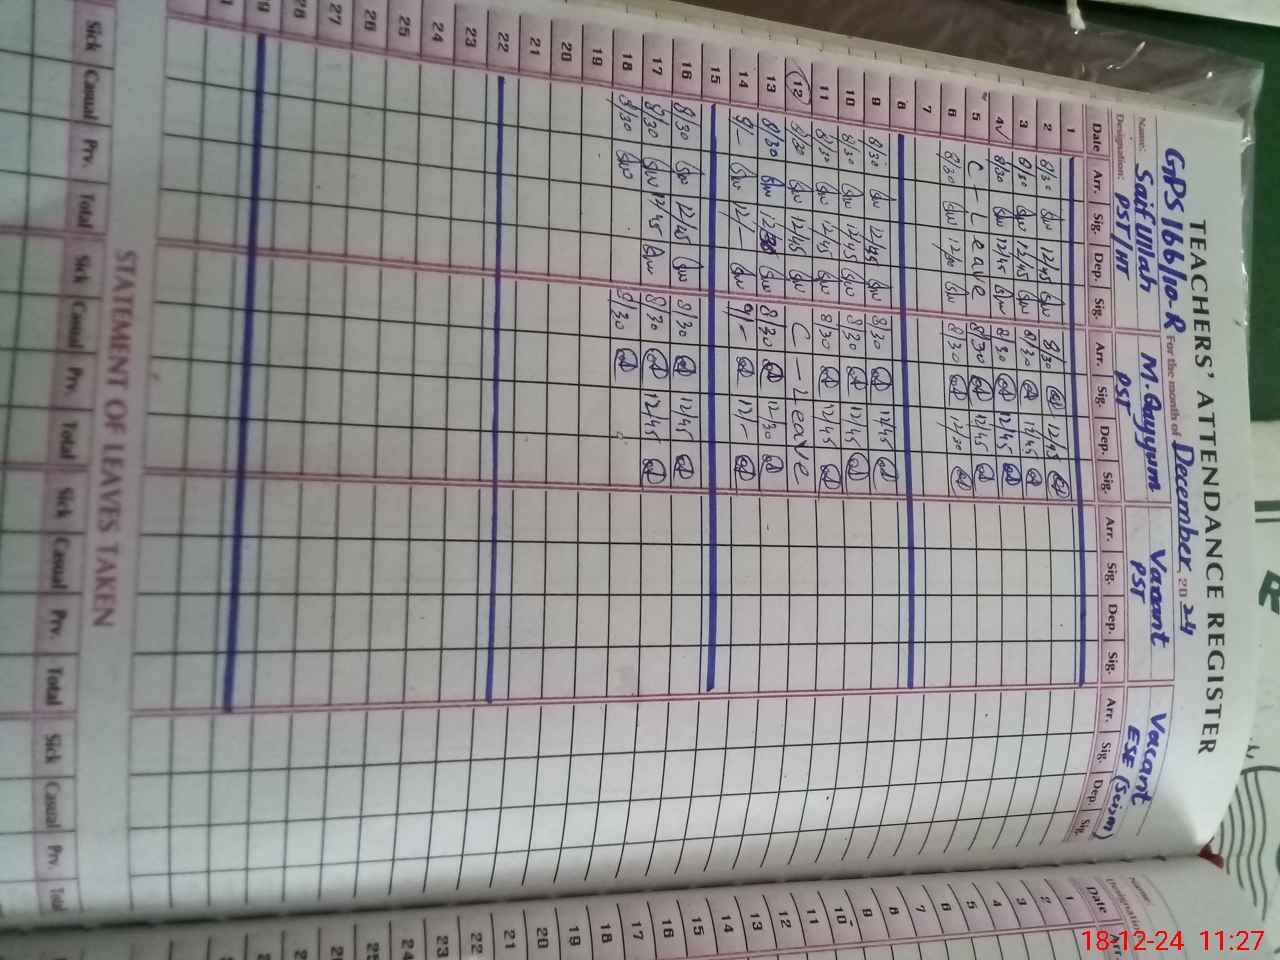 TEACHERS' ATTENDANCE REGISTER
GPS 166/10-R For the month of December 2024
Name: Saif Ullah M. Qayyum Vacant Vacant
Designation: PST/HT PST PST ESE (Scism)
Date Arr. Sig. Dep. Sig. Arr. Sig. Dep. Sig. Arr. Sig. Dep. Sig. Arr. Sig. Dep. Sig.
1
2 8/30 12/45 8/30 12/45
3 8/30 12/45 8/30 12/45
4 8/30 12/45 8/30 12/45
5 C - Leave 8/30 12/45
6 8/30 12/30 8/30 12/30
7
8
9 8/30 12/45 8/30 12/45
10 8/30 12/45 8/30 12/45
11 8/30 12/45 8/30 12/45
12 8/30 12/45 C - Leave
13 8/30 8/30 12/30
14 9/- 12/- 9/- 12/-
15
16 8/30 12/45 8/30 12/45
17 8/30 12/45 8/30 12/45
18 8/30 8/30
19
20
21
22
23
24
25
26
27
28
STATEMENT OF LEAVES TAKEN
Sick Casual Prv. Total Sick Casual Prv. Total Sick Casual Prv. Total Sick Casual Prv. Total
Name:
Designation:
Date
1
2
3
4
5
6
7
8
9
10
11
12
13
14
15
16
17
18
19
20
21
22
23
24
25
26
27
28
18-12-24 11:27